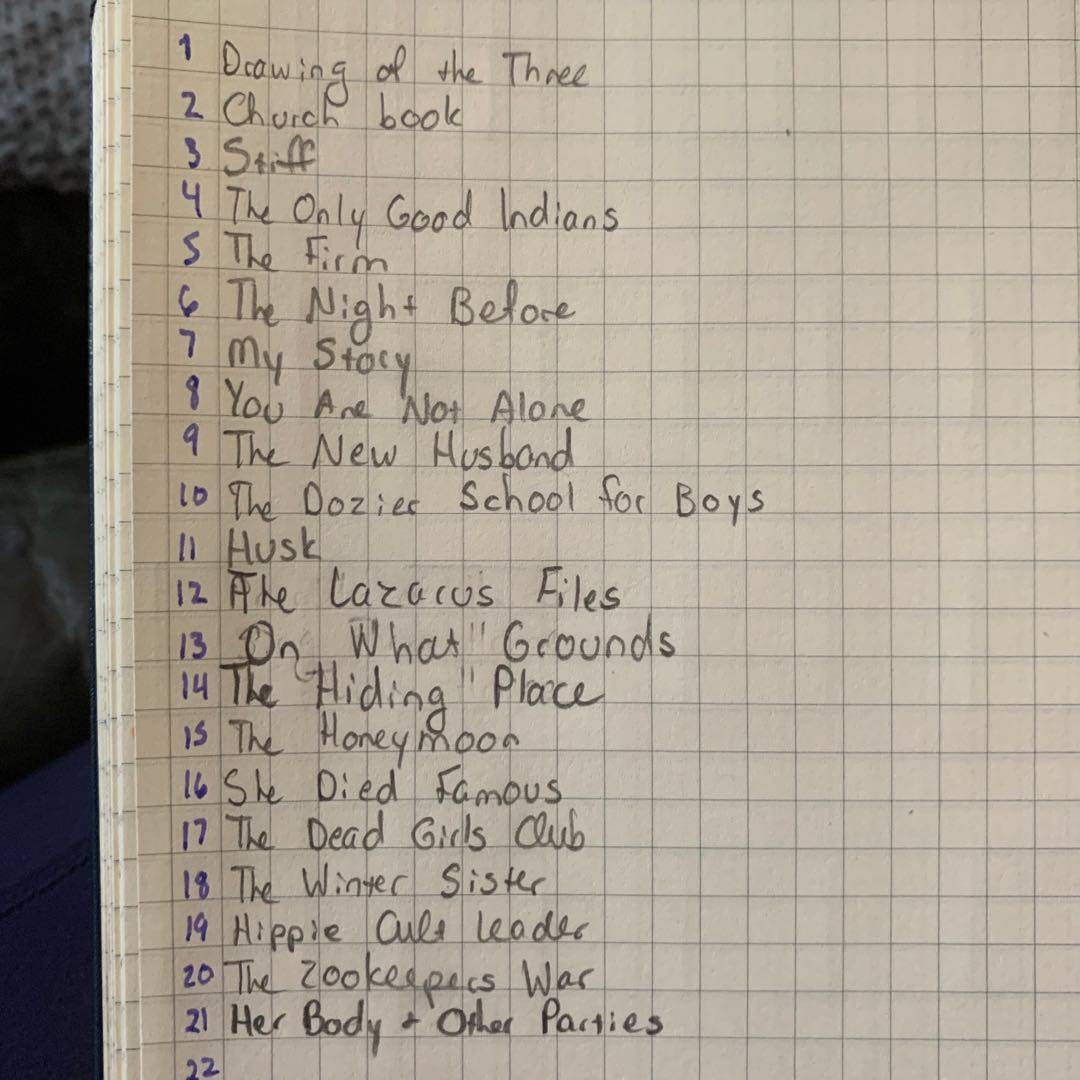 1 Drawing of the Three
2 Church book
3 Stiff
4 The Only Good Indians
5 The Firm
6 The Night Before
7 My Story
8 You Are Not Alone
9 The New Husband
10 The Dozier School for Boys
11 Husk
12 The Lazarus Files
13 On What Grounds
14 The Hiding Place
15 The Honeymoon
16 She Died Famous
17 The Dead Girls Club
18 The Winter Sister
19 Hippie Cult Leader
20 The Zookeepers War
21 Her Body + Other Parties
22